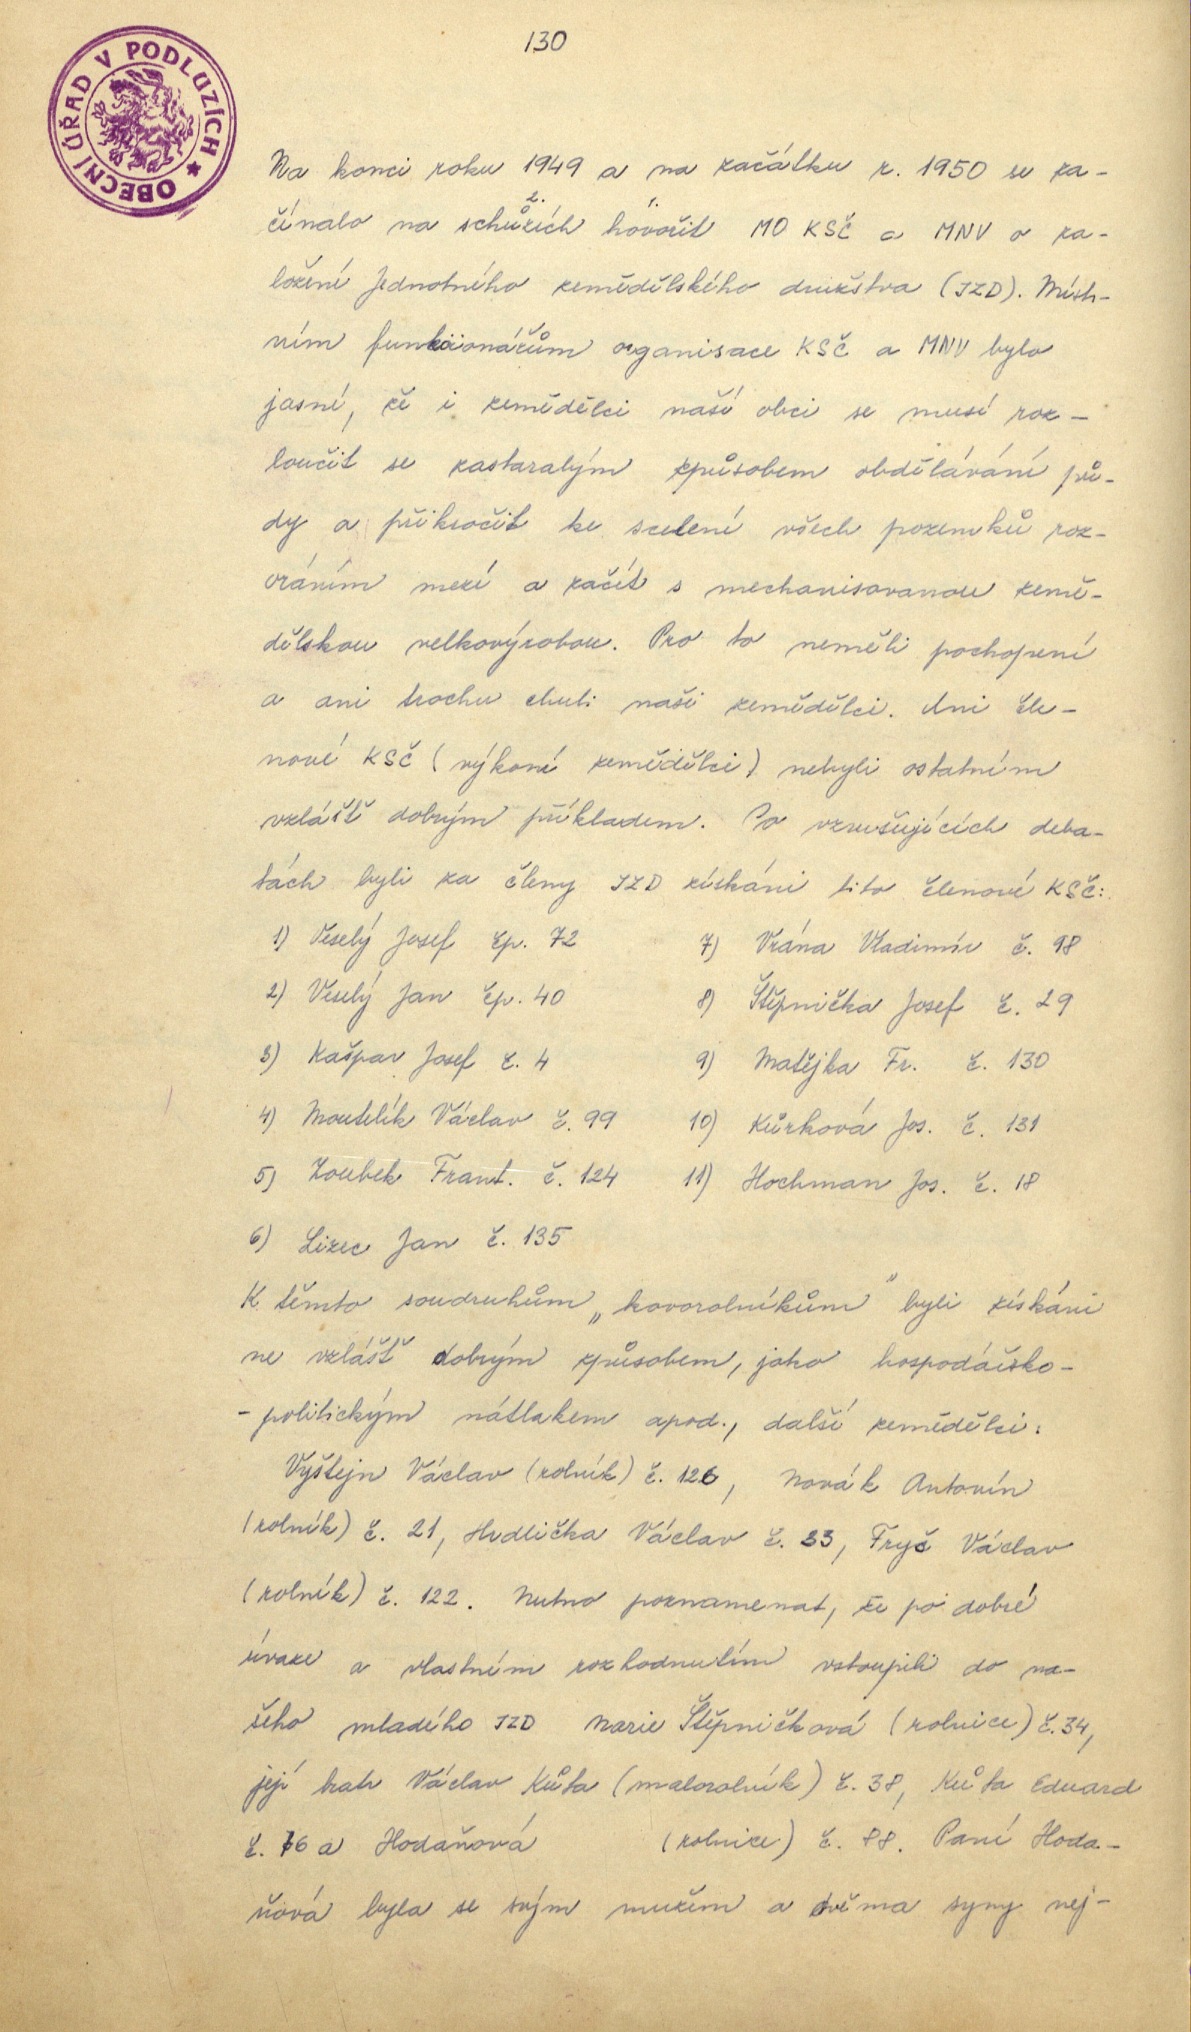 130
OBECNÍ ÚŘAD V PODLUZÍCH *
Na konci roku 1949 a na začátku r. 1950 se za-
čínalo na schůzích hovořit MO KSČ a MNV o za-
2. 1.
ložení Jednotného zemědělského družstva (JZD). Míst-
ním funkcionářům organisace KSČ a MNV bylo
jasné, že i zemědělci naší obci se musí roz-
loučit se zastaralým způsobem obdělávání pů-
dy a přikročit ke scelení všech pozemků roz-
oráním mezí a začít s mechanisovanou země-
dělskou velkovýrobou. Pro to neměli pochopení
a ani trochu chuti naši zemědělci. Ani čle-
nové KSČ (výkoní zemědělci) nebyli ostatním
vzlášť dobrým příkladem. Po vzrušujících deba-
tách byli za členy JZD získáni tito členové KSČ:
1) Veselý Josef čp. 72
7) Vrána Vladimír č. 98
2) Veselý Jan čp. 40
8) Štěpnička Josef č. 29
3) Kašpar Josef č. 4
9) Matějka Fr. č. 130
4) Moutelík Václav č. 99
10) Kůrková Jos. č. 131
5) Zoubek Frant. č. 124
11) Hochman Jos. č. 18
6) Lizec Jan č. 135
K těmto soudruhům „kovorolníkům" byli získáni
ne vzlášť dobrým způsobem, jako hospodářsko-
-politickým nátlakem apod., další zemědělci:
Vyštejn Václav (rolník) č. 126, Novák Antonín
(rolník) č. 21, Hvdlička Václav č. 33, Fryš Václav
(rolník) č. 122. Nutno poznamenat, že po dobré
úvaze a vlastním rozhodnutím vstoupili do na-
šeho mladého JZD Marie Štěpničková (rolnice) č. 34,
její bratr Václav Kůta (malorolník) č. 38, Kůta Eduard
č. 76 a Hodaňová (rolnice) č. 88. Paní Hoda-
ňová byla se svým mužem a dvěma syny nej-